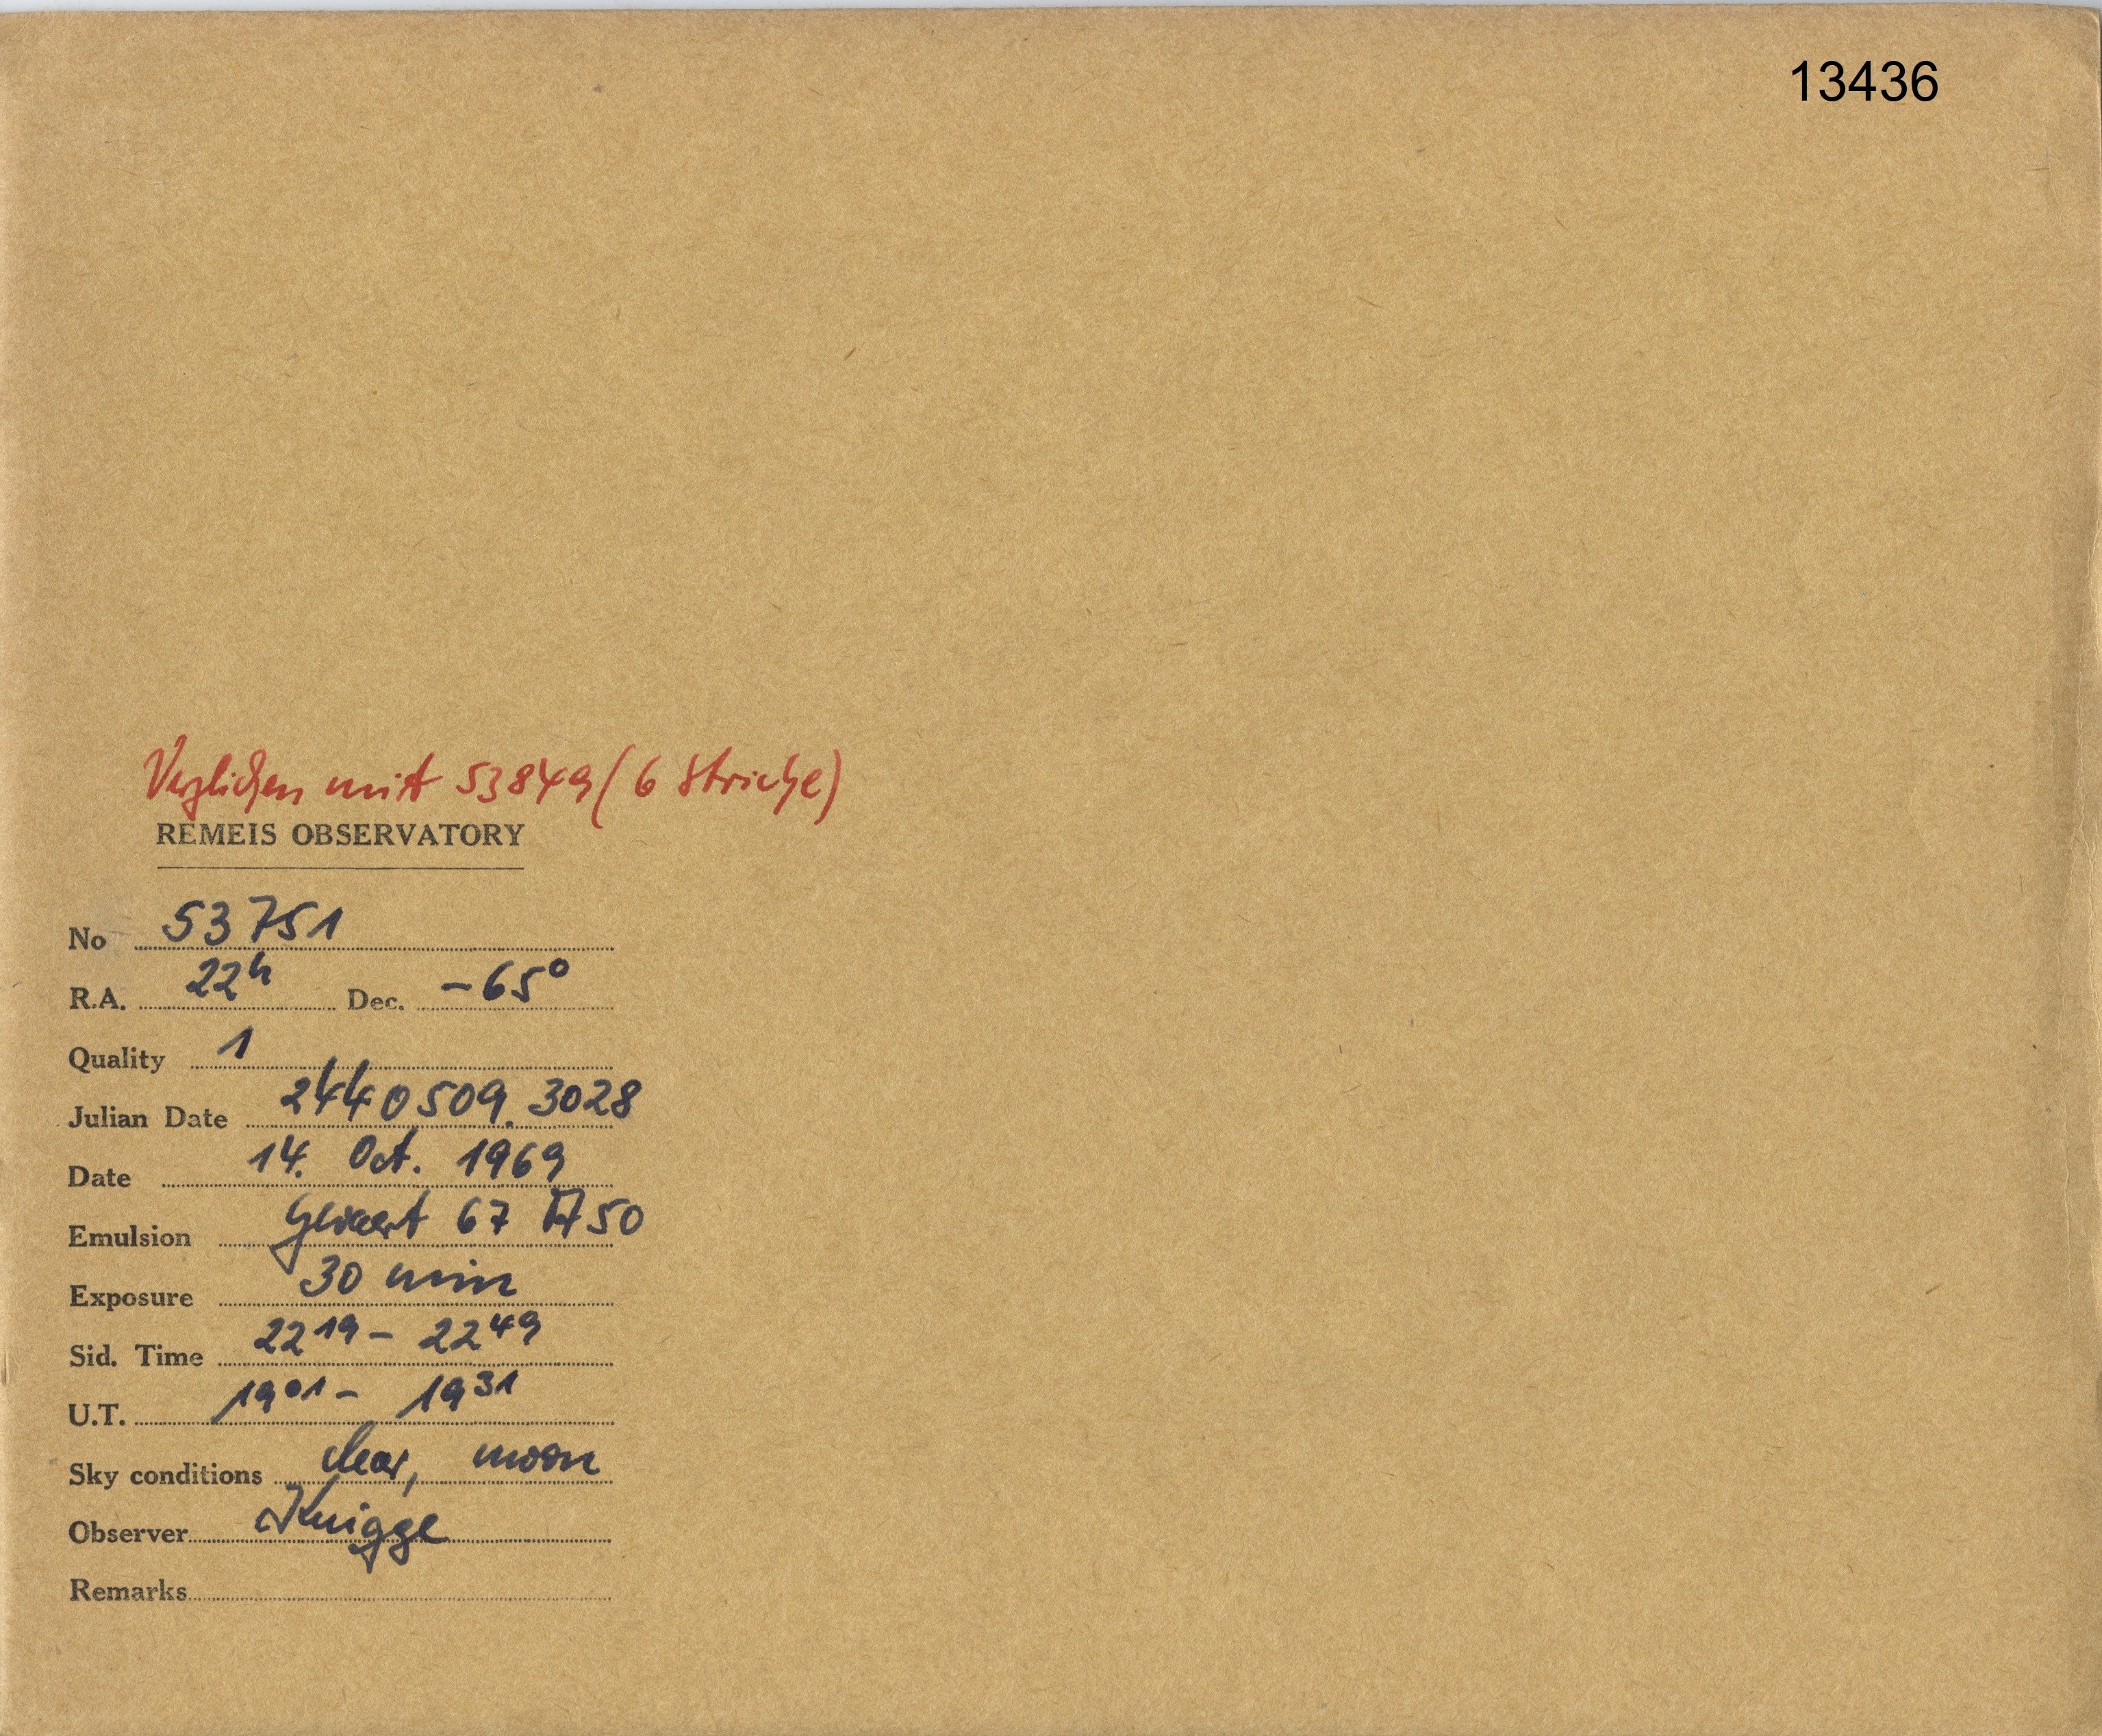 13436
Verglichen mit 53849 (6 Striche)
REMEIS OBSERVATORY
No 53751
R.A. 22h Dec. -65°
Quality 1
Julian Date 2440509.3028
Date 14. Oct. 1969
Emulsion Gevaert 67 A50
Exposure 30 min
Sid. Time 22 19 - 22 49
U.T. 19 01 - 19 31
Sky conditions clear, moon
Observer Knigge
Remarks